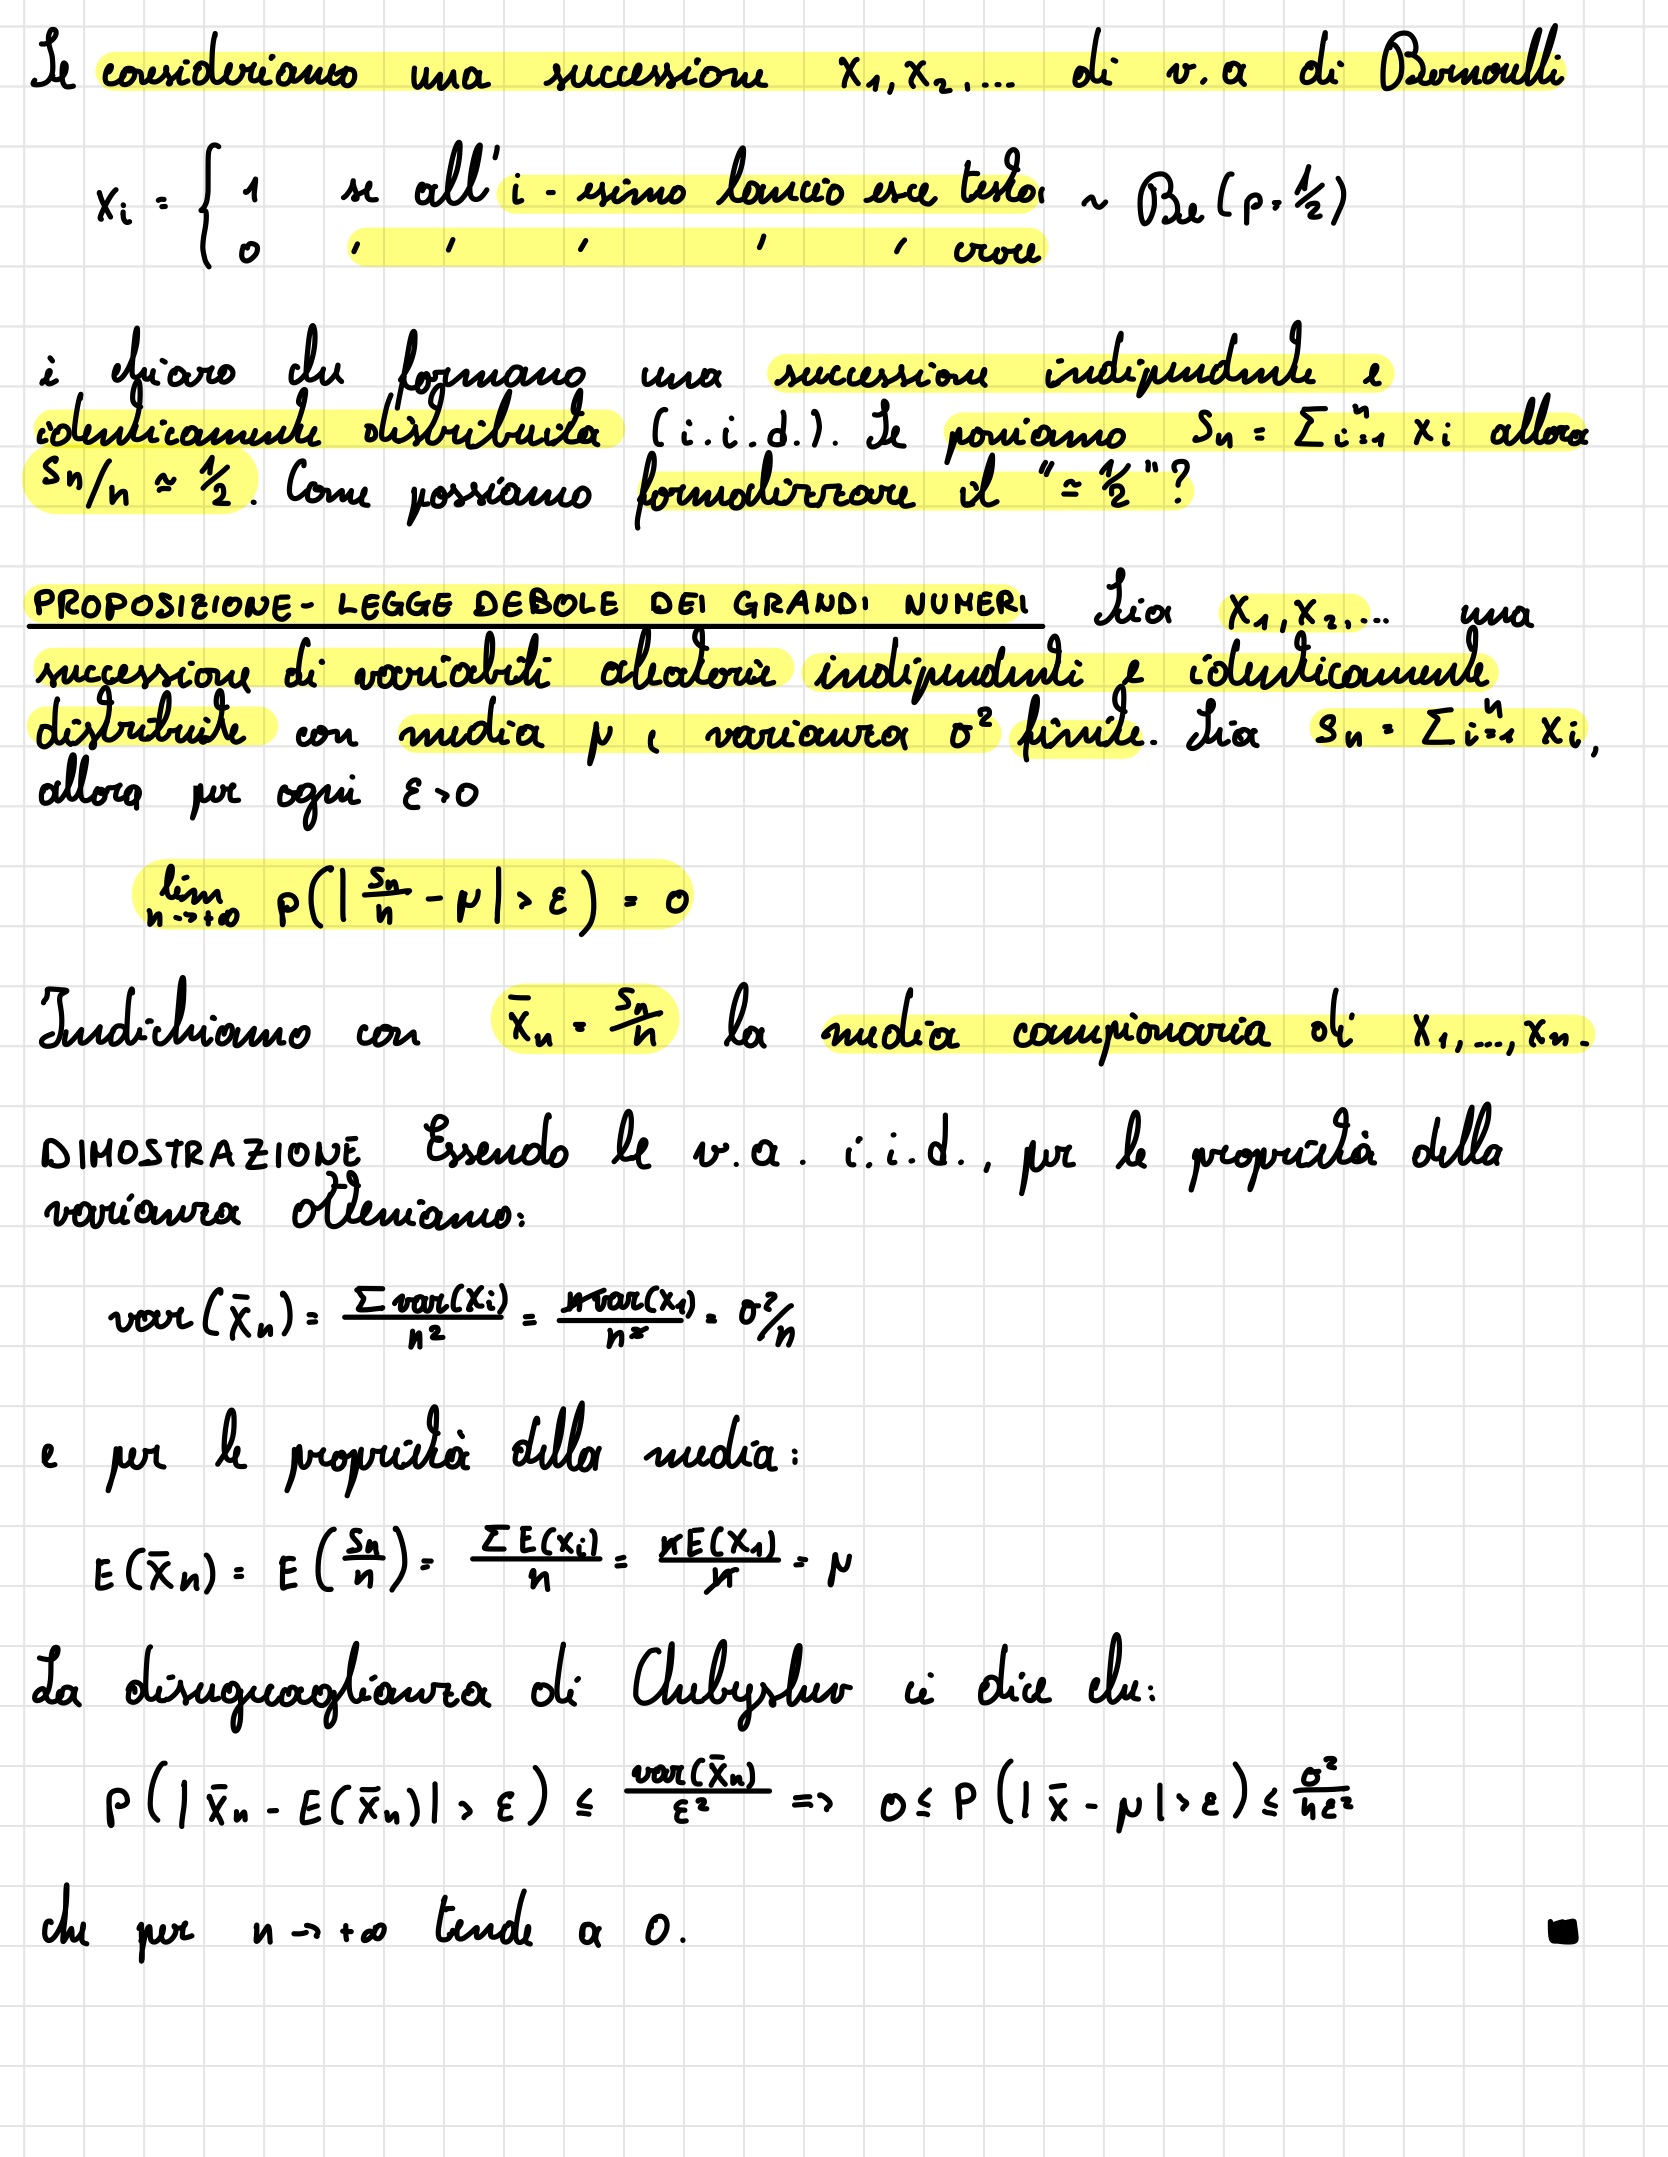 Se consideriamo una successione X₁, X₂, ... di v.a di Bernoulli
Xᵢ = { 1 se all' i-esimo lancio esce testa ~ Be (p = 1/2)
0 ' ' ' ' ' croce
è chiaro che formano una successione indipendente e
identicamente distribuita (i.i.d.). Se poniamo Sₙ = Σⁿᵢ₌₁ Xᵢ allora
Sₙ/n ≃ 1/2. Come possiamo formalizzare il "≃ 1/2"?
PROPOSIZIONE - LEGGE DEBOLE DEI GRANDI NUMERI Sia X₁, X₂, ... una
successione di variabili aleatorie indipendenti e identicamente
distribuite con media μ e varianza σ² finite. Sia Sₙ = Σⁿᵢ₌₁ Xᵢ,
allora per ogni ε > 0
lim n→+∞ P(|Sₙ/n - μ| > ε) = 0
Indichiamo con X̄ₙ = Sₙ/n la media campionaria di X₁, ..., Xₙ.
DIMOSTRAZIONE Essendo le v.a. i.i.d., per le proprietà della
varianza otteniamo:
var(X̄ₙ) = Σ var(Xᵢ)/n² = n var(X₁)/n² = σ²/n
e per le proprietà della media:
E(X̄ₙ) = E(Sₙ/n) = Σ E(Xᵢ)/n = n E(X₁)/n = μ
La disuguaglianza di Chebyshev ci dice che:
P(|X̄ₙ - E(X̄ₙ)| > ε) ≤ var(X̄ₙ)/ε² => 0 ≤ P(|X̄ - μ| > ε) ≤ σ²/nε²
che per n → +∞ tende a 0. ■